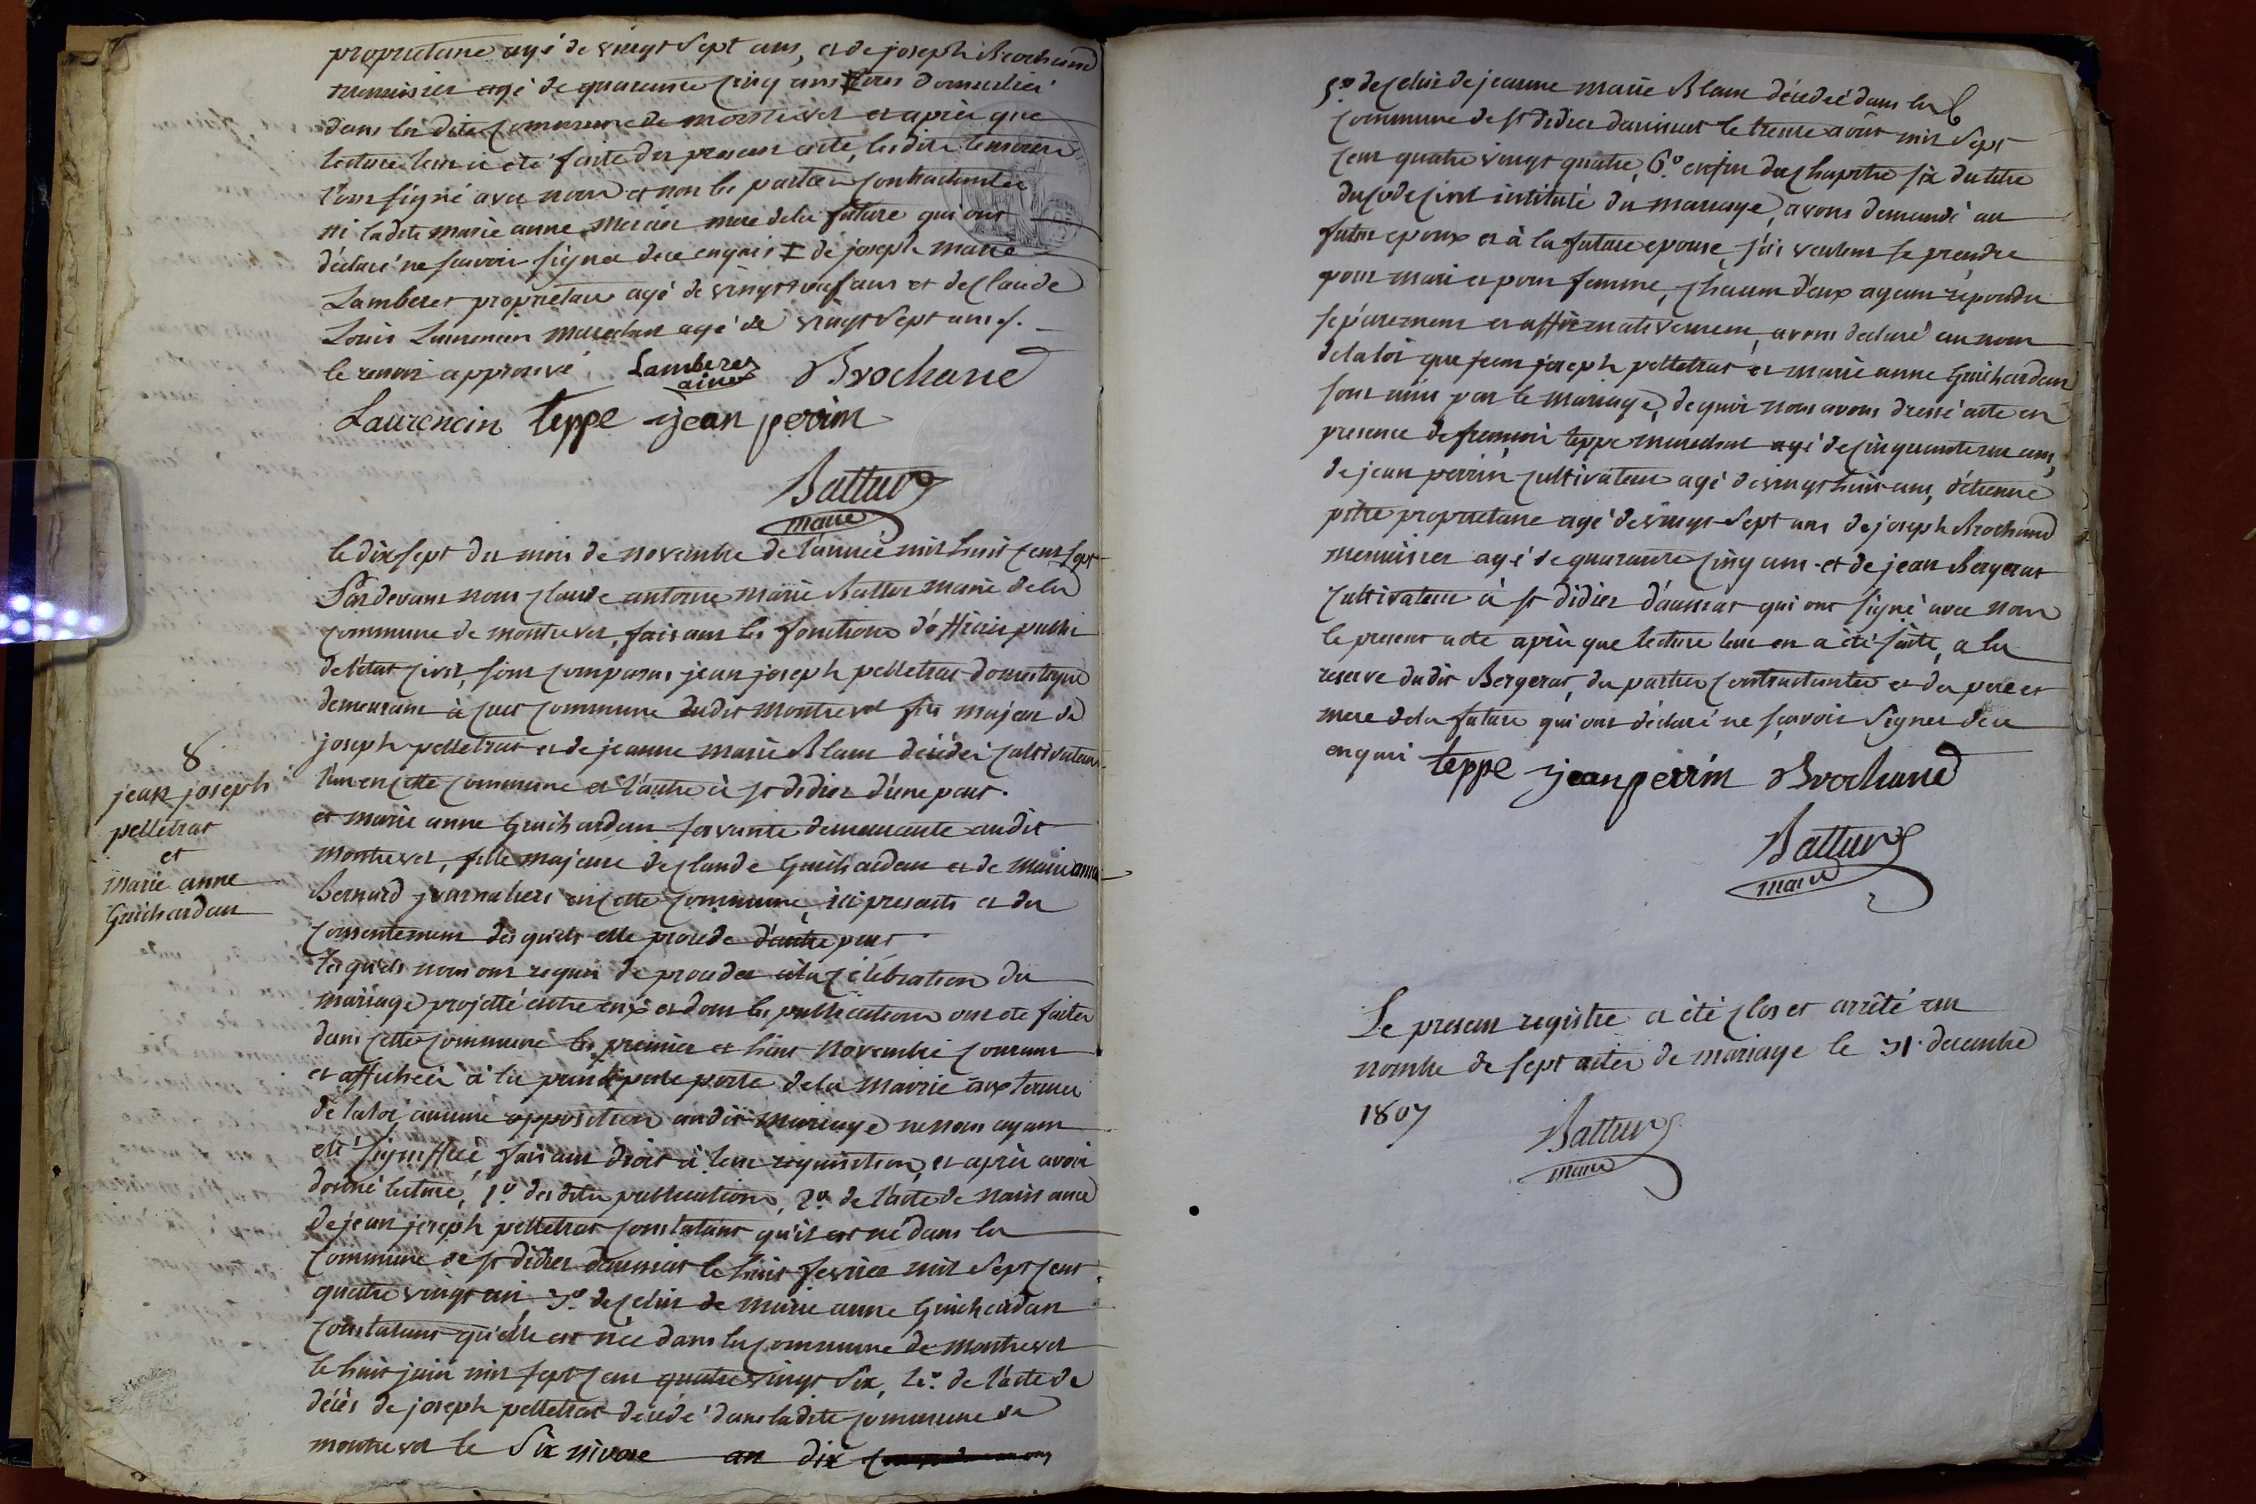 proprietaire agé de vingt Sept ans, et de joseph Brochand
menuisier agé de quarante cinq ans tous domiciliés
dans la dite commune de montrevel et après que
lecture leur a eté faite du present acte, les dits temoins
l'ont signé avec nous et non les parties contractantes
ni la dite marie anne mercier mere de la future qui ont
déclaré ne scavoir signer de ce enquis ‡ de joseph marie
Lamberet proprietaire agé de vingt neuf ans et de Claude
Louis Laurencin marechal agé de vingt Sept ans ./.
le renvoi approuvé. Lamberet
ainé Brochand
Laurencin teppe jean perrin
Battur
maire
le dix sept du mois de novembre de l'année mil huit cent sept
Pardevant nous claude antoine marie Battur maire de la
commune de montrevel, faisant les fonctions d'officier public
de l'état civil, sont comparus jean joseph pelletrat domestique
demeurant à cuet commune dudit montrevel fils majeur de
joseph pelletrat et de jeanne marie Blanc décédés cultivateurs
l'un en cette commune et l'autre à st didier d'une part.
et marie anne Guichardan servante demeurante audit
montrevel, fille majeure de claude Guichardan et de marie anne
Bernard journaliers en cette commune, ici presents et du
consentement des quels elle procede d'autre part.
les quels nous ont requis de proceder à la célébration du
mariage projetté entre eux et dont les publications ont eté faites
dans cette commune les premier et huit novembre courant
et affichées à la principale porte de la mairie aux termes
de la loi, aucune opposition au dit mariage ne nous ayant
eté signiffiée, faisant droit à leur requisition, et après avoir
donné lecture, 1º. des dites publications, 2º. de l'acte de naissance
de jean joseph pelletrat constatant qu'il est né dans la
commune de st didier d'aussiat le huit fevrier mil Sept cent
quatre vingt un, 3º. de celui de marie anne Guichardan
constatant qu'elle est née dans la commune de montrevel
le huit juin mil sept cent quatre vingt Six, 4º. de l'acte de
décès de joseph pelletrat décédé dans la dite commune de
montrevel le Six nivose an dix
8
jean joseph
pelletrat
et
marie anne
Guichardan
5º. de celui de jeanne marie Blanc décédée dans la
commune de st didier daussiat le trente août mil Sept
cent quatre vingt quatre, 6º. enfin du chapitre six du titre
du code civil intitulé du mariage, avons demandé au
futur epoux et à la future epouse, s'ils veulent se prendre
pour mari et pour femme, chacun d'eux ayant répondu
séparement et affirmativement, avons declaré au nom
de la loi que jean joseph pelletrat et marie anne Guichardan
sont unis par le mariage, de quoi nous avons dressé acte en
presence de teppe marechal agé de cinquante ans,
de jean perrin cultivateur agé de vingt huit ans, d'étienne
pitre proprietaire agé de vingt-Sept ans de joseph Brochand
menuisier agé de quarante cinq ans. et de jean Bergerat
cultivateur à st didier d'aussiat qui ont signé avec nous
le present acte après que lecture leur en a été faite, a la
reserve dudit Bergerat, des parties contractantes et des pere et
mere de la future qui ont déclaré ne scavoir Signer de ce
enquis teppe jean perrin Brochand
Battur
maire
Le present registre a été clos et arrêté au
nombre de sept actes de mariage le 31. decembre
1807
Battur
maire